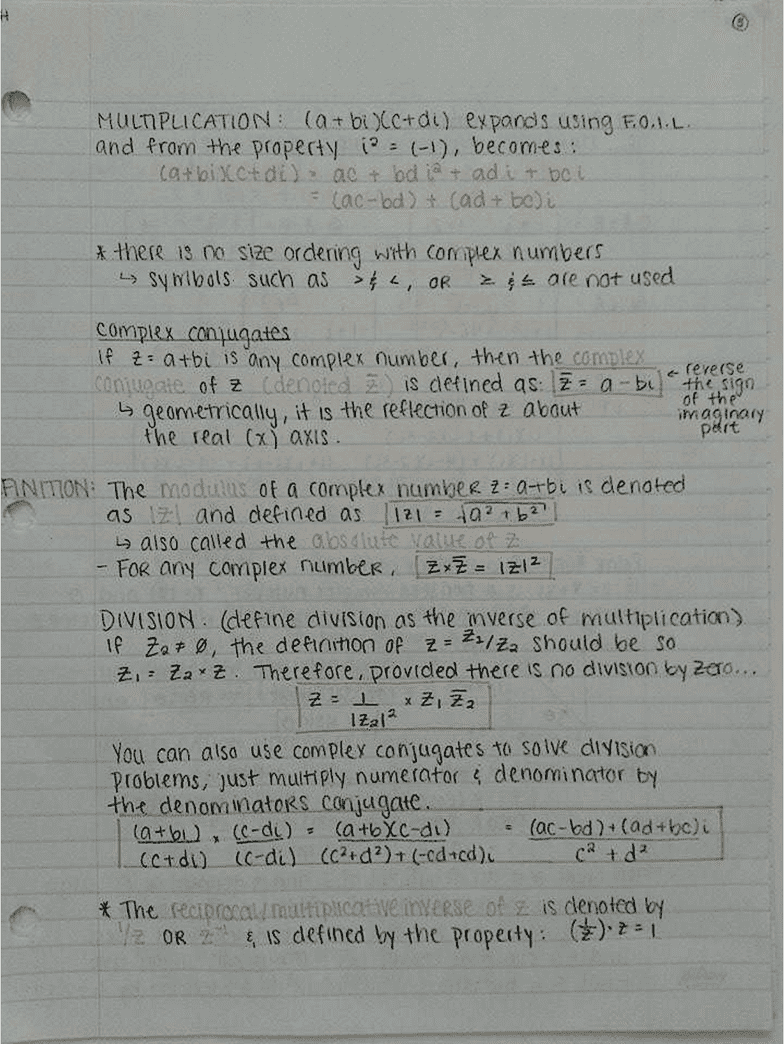 H
9
MULTIPLICATION: (a+bi)(c+di) expands using F.O.I.L.
and from the property i² = (-1), becomes:
(a+bi)(c+di) = ac + bdi² + adi + bci
= (ac-bd) + (ad+bc)i
* there is no size ordering with complex numbers
↳ symbols such as > & <, OR ≥ & ≤ are not used
Complex conjugates
If z = a+bi is any complex number, then the complex
conjugate of z (denoted z̄) is defined as: z̄ = a - bi ← reverse the sign of the imaginary part
↳ geometrically, it is the reflection of z about
the real (x) axis.
FINITION: The modulus of a complex number z = a+bi is denoted
as |z| and defined as |z| = √(a² + b²)
↳ also called the absolute value of z
- For any complex number, z × z̄ = |z|²
DIVISION. (define division as the inverse of multiplication)
If z₂ ≠ 0, the definition of z = z₁/z₂ should be so
z₁ = z₂ × z. Therefore, provided there is no division by zero...
z = 1/|z₂|² × z₁ z̄₂
You can also use complex conjugates to solve division
problems, just multiply numerator & denominator by
the denominators conjugate.
(a+bi)/(c+di) × (c-di)/(c-di) = (a+b)(c-di)/(c²+d²)+(-cd+cd)i = (ac-bd)+(ad+bc)i/c² + d²
* The reciprocal/multiplicative inverse of z is denoted by
1/z OR z⁻¹ & is defined by the property: (1/z)·z = 1